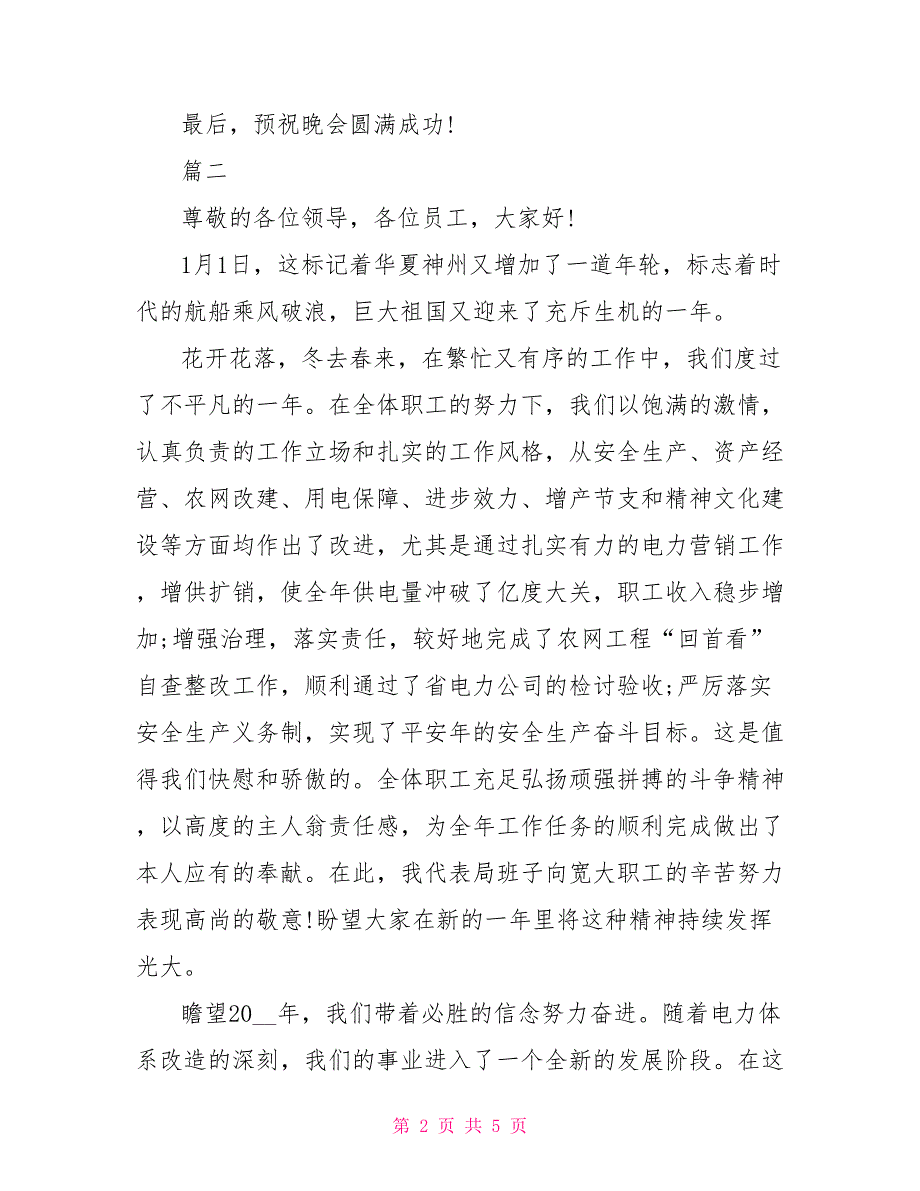 最后，预祝晚会圆满成功!
篇二
尊敬的各位领导，各位员工，大家好!
1月1日，这标记着华夏神州又增加了一道年轮，标志着时
代的航船乘风破浪，巨大祖国又迎来了充斥生机的一年。
花开花落，冬去春来，在繁忙又有序的工作中，我们度过
了不平凡的一年。在全体职工的努力下，我们以饱满的激情，
认真负责的工作立场和扎实的工作风格，从安全生产、资产经
营、农网改建、用电保障、进步效力、增产节支和精神文化建
设等方面均作出了改进，尤其是通过扎实有力的电力营销工作
，增供扩销，使全年供电量冲破了亿度大关，职工收入稳步增
加;增强治理，落实责任，较好地完成了农网工程“回首看”
自查整改工作，顺利通过了省电力公司的检讨验收;严厉落实
安全生产义务制，实现了平安年的安全生产奋斗目标。这是值
得我们快慰和骄傲的。全体职工充足弘扬顽强拼搏的斗争精神
，以高度的主人翁责任感，为全年工作任务的顺利完成做出了
本人应有的奉献。在此，我代表局班子向宽大职工的辛苦努力
表现高尚的敬意!盼望大家在新的一年里将这种精神持续发挥
光大。
瞻望20__年，我们带着必胜的信念努力奋进。随着电力体
系改造的深刻，我们的事业进入了一个全新的发展阶段。在这
第 2 页 共 5 页